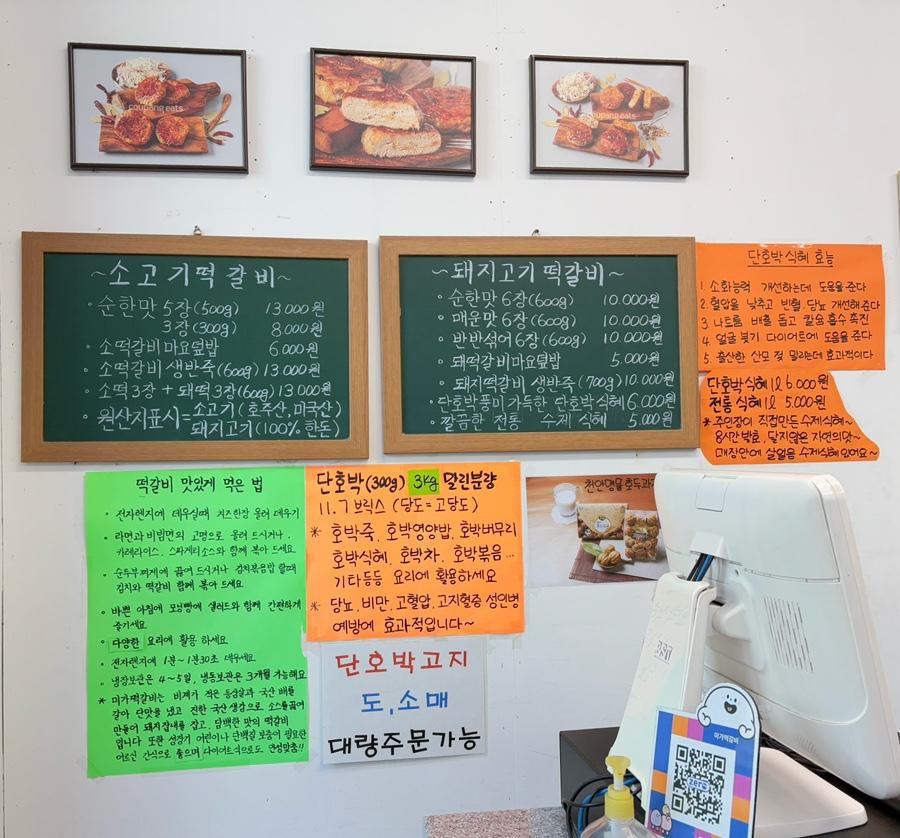 coupang eats
coupang eats
~소고기떡갈비~
· 순한맛 5장(500g) 13.000원
3장(300g) 8.000원
· 소떡갈비마요덮밥 6.000원
· 소떡갈비 생반죽(600g) 13.000원
· 소떡3장 + 돼떡3장(600g) 13.000원
· 원산지표시=소고기(호주산,미국산)
돼지고기(100% 한돈)
~돼지고기떡갈비~
· 순한맛 6장(600g) 10.000원
· 매운맛 6장(600g) 10.000원
· 반반섞어6장(600g) 10.000원
· 돼떡갈비마요덮밥 5.000원
· 돼지떡갈비 생반죽(700g) 10.000원
· 단호박풍미가득한 단호박식혜 6.000원
· 깔끔한 전통 수제 식혜 5.000원
단호박식혜 효능
1. 소화능력 개선하는데 도움을 준다
2. 혈압을 낮추고 빈혈.당뇨 개선해준다
3. 나트륨 배출 돕고 칼슘흡수 촉진
4. 얼굴 붓기 다이어트에 도움을 준다
5. 출산한 산모 젖 말리는데 효과적이다
단호박식혜 1l 6.000원
전통 식혜 1l 5.000원
* 주인장이 직접만든 수제식혜~
8시간 발효, 달지않은 자연의맛~
매장안에 살얼음 수제식혜 있어요~
떡갈비 맛있게 먹은 법
· 전자렌지에 데우실때 치즈한장 올려 데우기
· 라면과 비빔면의 고명으로 올려 드시거나.
카레라이스. 스파게티소스와 함께 볶아 드세요
· 순두부찌게에 끓여 드시거나 김치볶음밥 할때
김치와 떡갈비 함께 볶아 드세요
· 바쁜 아침에 모닝빵에 샐러드와 함께 간편하게
즐기세요
· 다양한 요리에 활용 하세요
· 전자렌지에 1분~1분30초 데우세요
· 냉장보관은 4~5일, 냉동보관은 3개월 가능해요
* 미가떡갈비는 비계가 적은 등심살과 국산 배를
갈아 단맛을 냈고 진한 국산 생강으로 소스를끓여
만들어 돼지잡내를 잡고, 담백한 맛의 떡갈비
입니다 또한 성장기 어린이나 단백질 보충이 필요한
어르신 간식으로 좋으며 다이어트식으로도 안성맞춤!!
단호박(300g) 3kg 말린분량
11.7 브릭스 (당도=고당도)
* 호박죽, 호박영양밥, 호박버무리
호박식혜, 호박차, 호박볶음...
기타등등 요리에 활용하세요
* 당뇨, 비만, 고혈압, 고지혈증 성인병
예방에 효과적입니다~
단호박고지
도,소매
대량주문가능
천안명물 호두과자
미가떡갈비